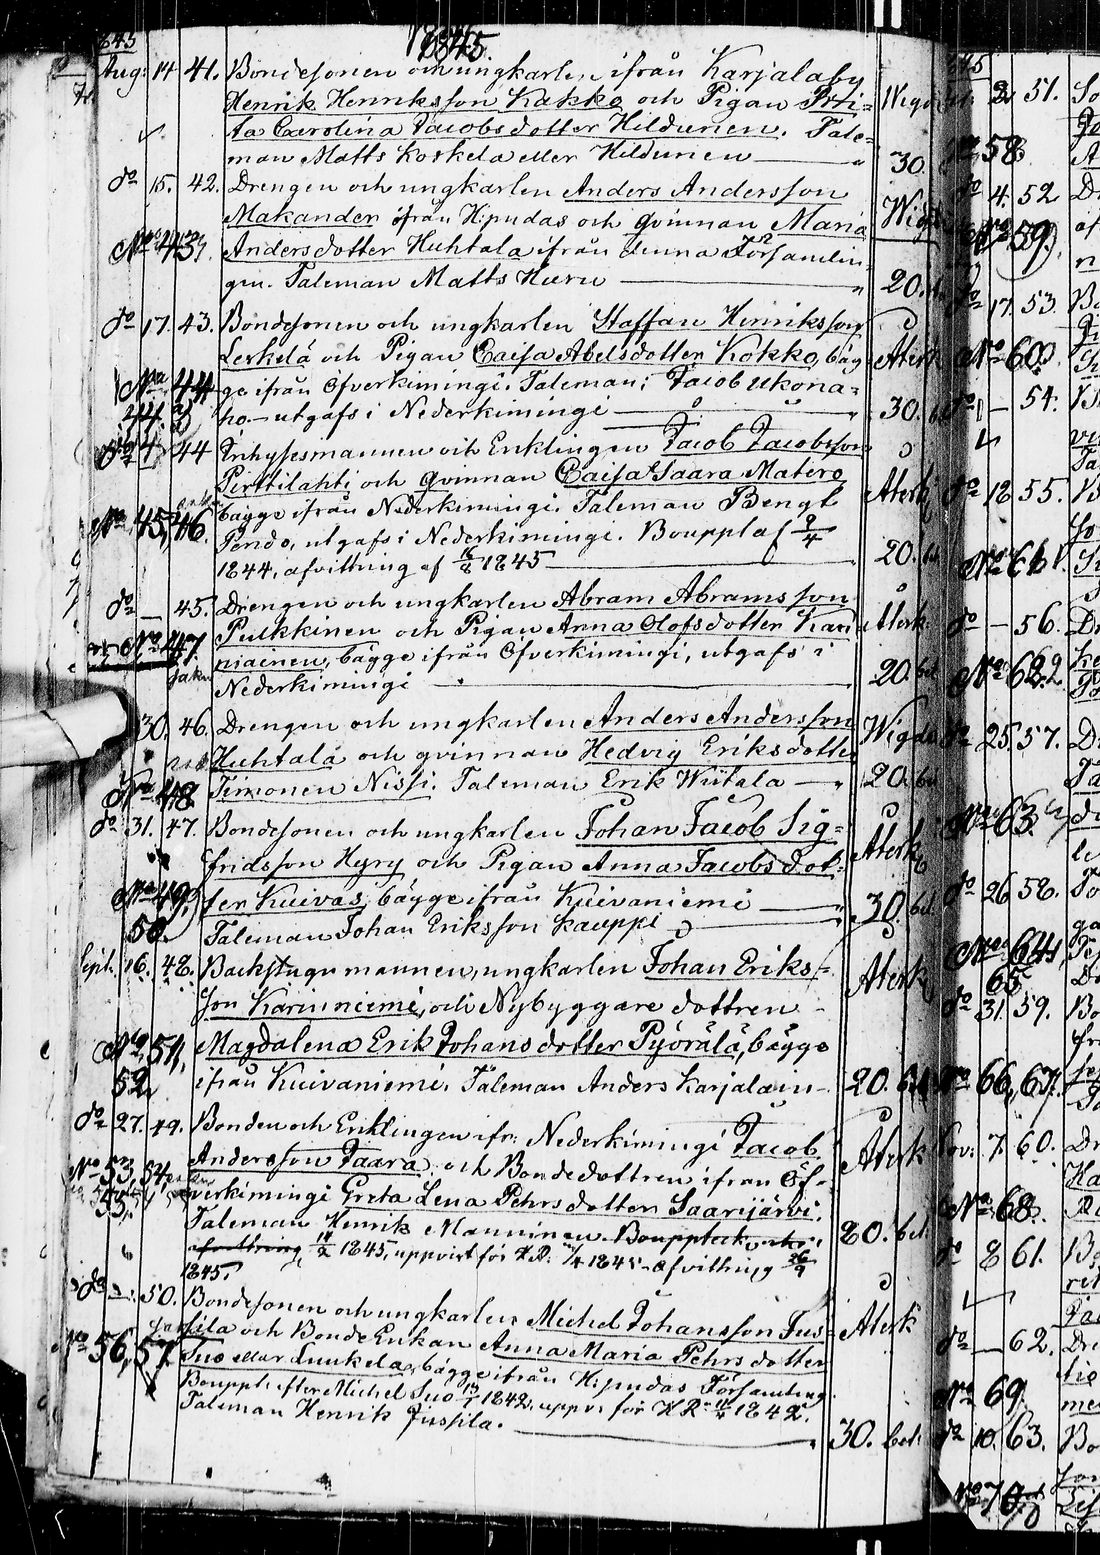 1845
1845.
Aug: 14 41. Bondesonen och ungkarlen, ifrån Karjalaby
Henrik Henriksson Kakko och Pigan Pri-
ta Carolina Jacobsdotter Hildunen. Tale-
man Matts Koskela eller Hildunen 30.
do 15. 42. Drengen och ungkarlen Anders Andersson
Makander ifrån Hipudas och qvinnan Maria
No 43, Andersdotter Huhtala ifrån denna Församlin-
gen. Taleman Matts Huru 20.
do 17. 43. Bondesonen och ungkarlen Staffan Henriksson
Leskelä och Pigan Caisa Abelsdotter Kokko, båg- Aterk
No 44 ge ifrån Öfverkimingi. Taleman: Jacob Ukona-
ho utgafs i Nederkimingi 30.
44 Inhysesmannen och Enklingen Jacob Jacobsson
Pirttilahti och qvinnan Caisa Saara Matero Aterk
No 45, 46. bägge ifrån Nederkimingi. Taleman Bengt
Pendo, utgafs i Nederkimingi. Bouppt af 9/4
1844, afvittring af 1845 20.
do — 45. Drengen och ungkarlen Abram Abramsson
No 47 Pulkkinen och Pigan Anna Olofsdotter Kari Aterk
niainen, bägge ifrån Öfverkimingi, utgafs i
Nederkimingi 20. bet
30. 46. Drengen och ungkarlen Anders Andersson
Huhtala och qvinnan Hedvig Eriksdotter
No 48 Timonen Nissi. Taleman Erik Wiitala 20. bet
do 31. 47. Bondesonen och ungkarlen Johan Jacob Sig-
fridsson Hyry och Pigan Anna Jacobsdot- Aterk
No 49, ter Kuivas, bägge ifrån Kuivaniemi
50. Taleman Johan Eriksson Kauppi 30. bet.
Sept. 16. 48. Backstugumannen, ungkarlen Johan Eriks-
son Karinniemi, och Nybyggare dottren Aterk
No 51, Magdalena Erik Johansdotter Pyörälä, bägge
52 ifrån Kuivaniemi. Taleman Anders Karjalain 20. bet
do 27. 49. Bonden och Enklingen ifr: Nederkimingi Jacob
Andersson Taara och Bondedottren ifrån Öf- Aterk
No 53, 54, verkimingi Greta Lena Pehrsdotter Saarijärvi.
55. Taleman Henrik Manninen. Bouppteckn
afvittring 1845, uppvist för H.R. 1845 Afvittring 26/9
1845. 20. bet.
do — 50. Bondesonen och ungkarlen Michel Johansson Jus-
sila och Bonde Enkan Anna Maria Pehrsdotter Aterk
No 56, 57. Suo eller Luukela, bägge ifrån Hipudas Församling.
Bouppt: efter Michel Suo 1842, uppv: för H.R. 1842.
Taleman Henrik Jussila. 30. bet:
1845
2. 51.
No 58
do 4. 52
No 59
17. 53.
No 60
— 54.
do 18 55.
No 61
do — 56.
No 62
25. 57.
No 63
do 26 58.
No 64
65
do 31. 59.
No 66, 67.
Nov: 7. 60.
No 68.
do 8 61.
do — 62.
No 69
do 10. 63.
No 70